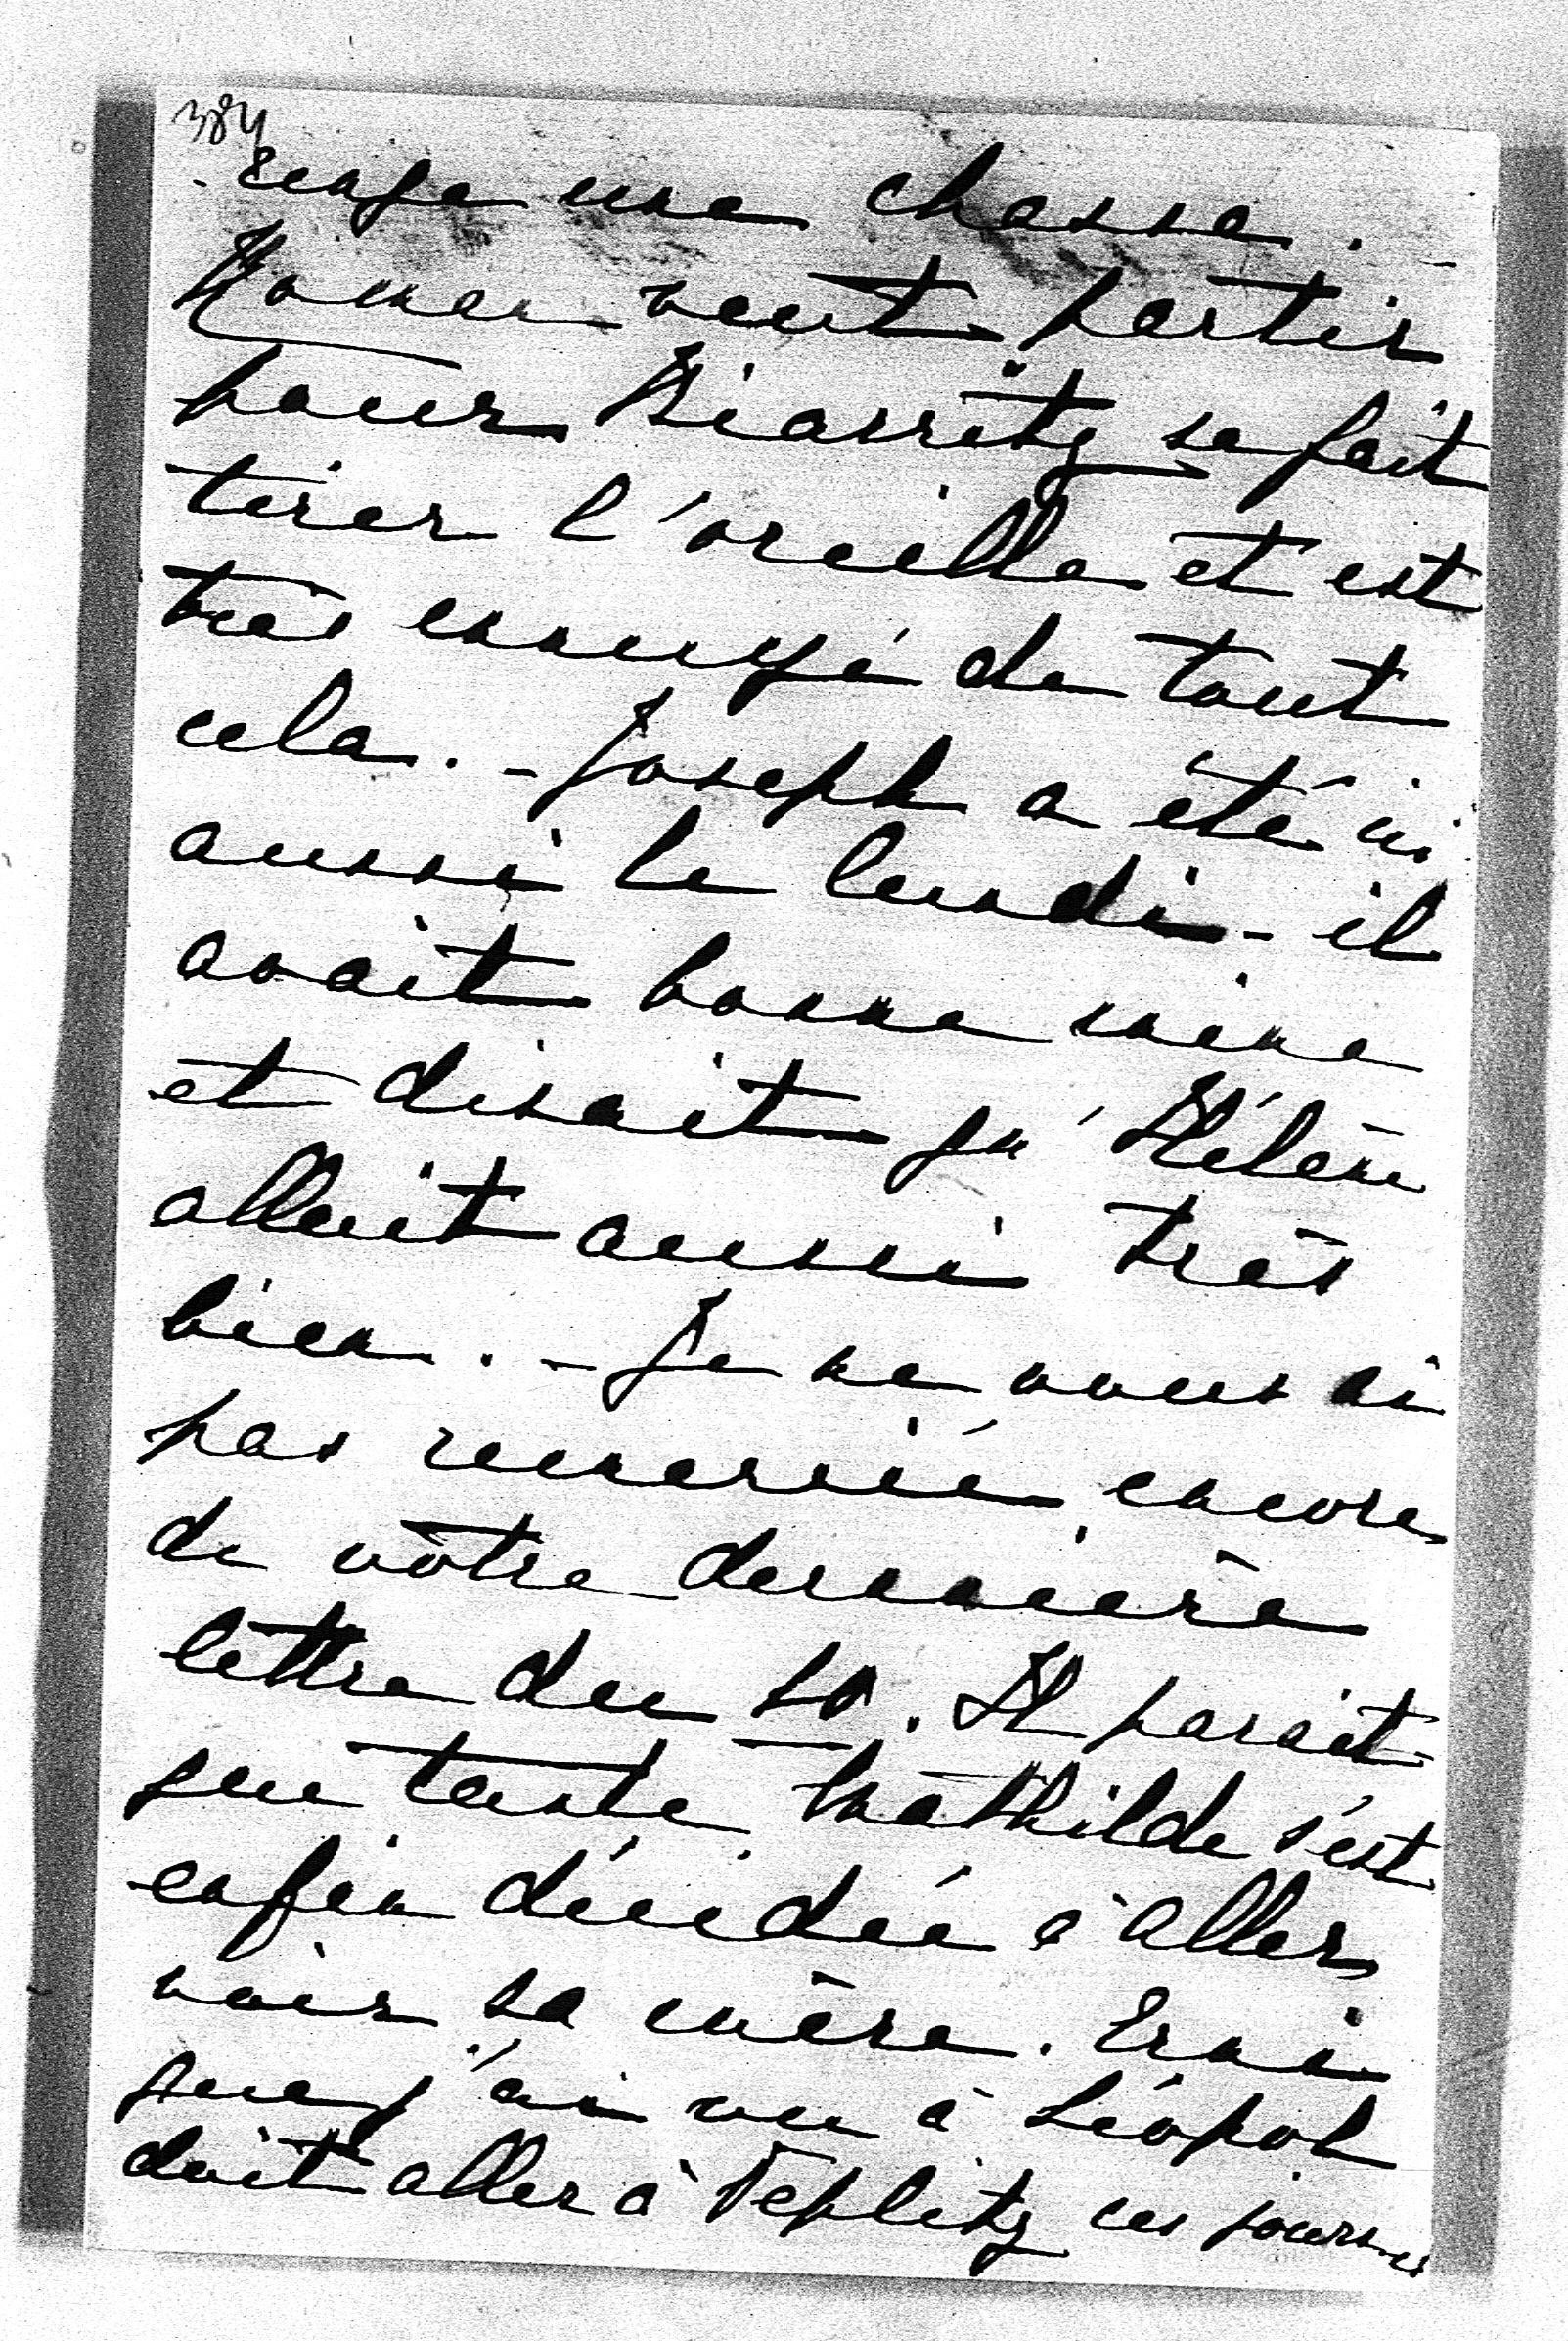 384
range une chasse.
Roman veut partir
pour Biarritz se fait
tirer l'oreille et est
très ennuyé de tout
cela. - Joseph a été ici
aussi le lundi - il
avait bonne mine
et disait qu'Hélène
allait aussi très
bien. - Je ne vous ai
pas remercié encore
de vôtre dernière
lettre du 10. Il parait
que tante Mathilde s'est
enfin décidée à aller
voir sa mère. Erni
que j'ai vu à Léopol
doit aller à Teplitz ces jours-ci